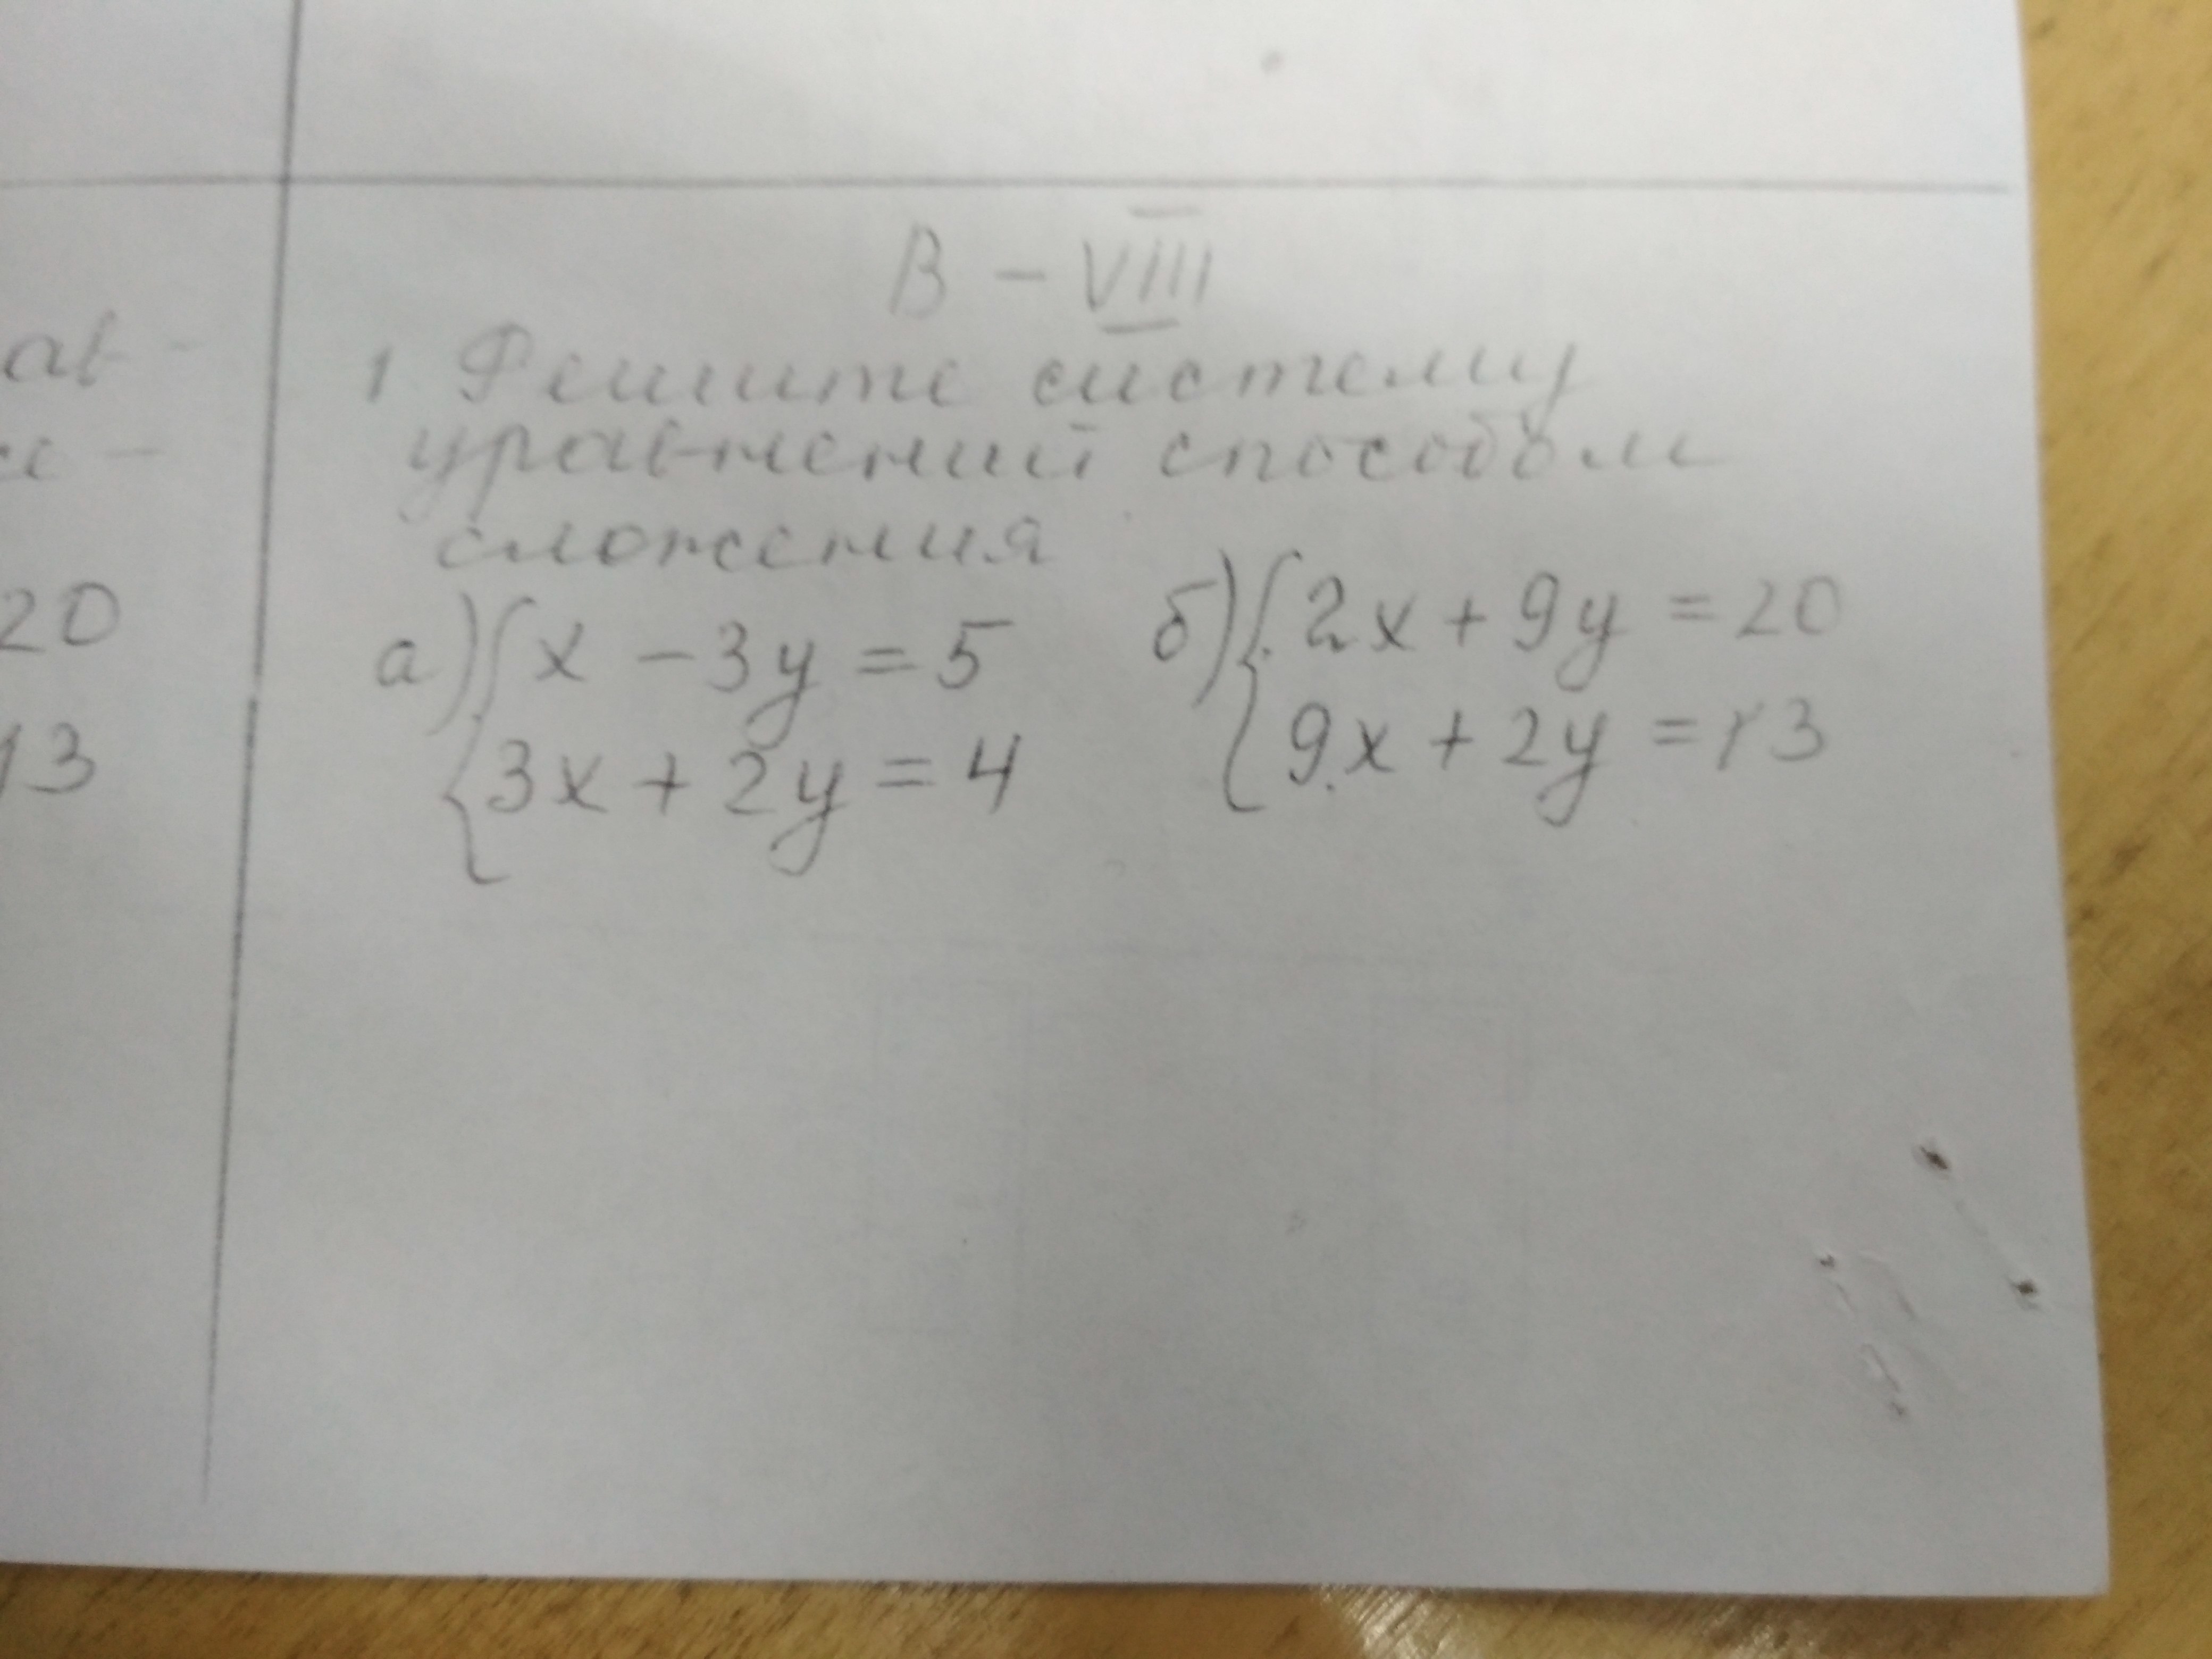 ав-
20
13
В - VIII
1 Решите систему
уравнений способом
сложения
а) { x - 3y = 5
3x + 2y = 4
б) { 2x + 9y = 20
9x + 2y = 13